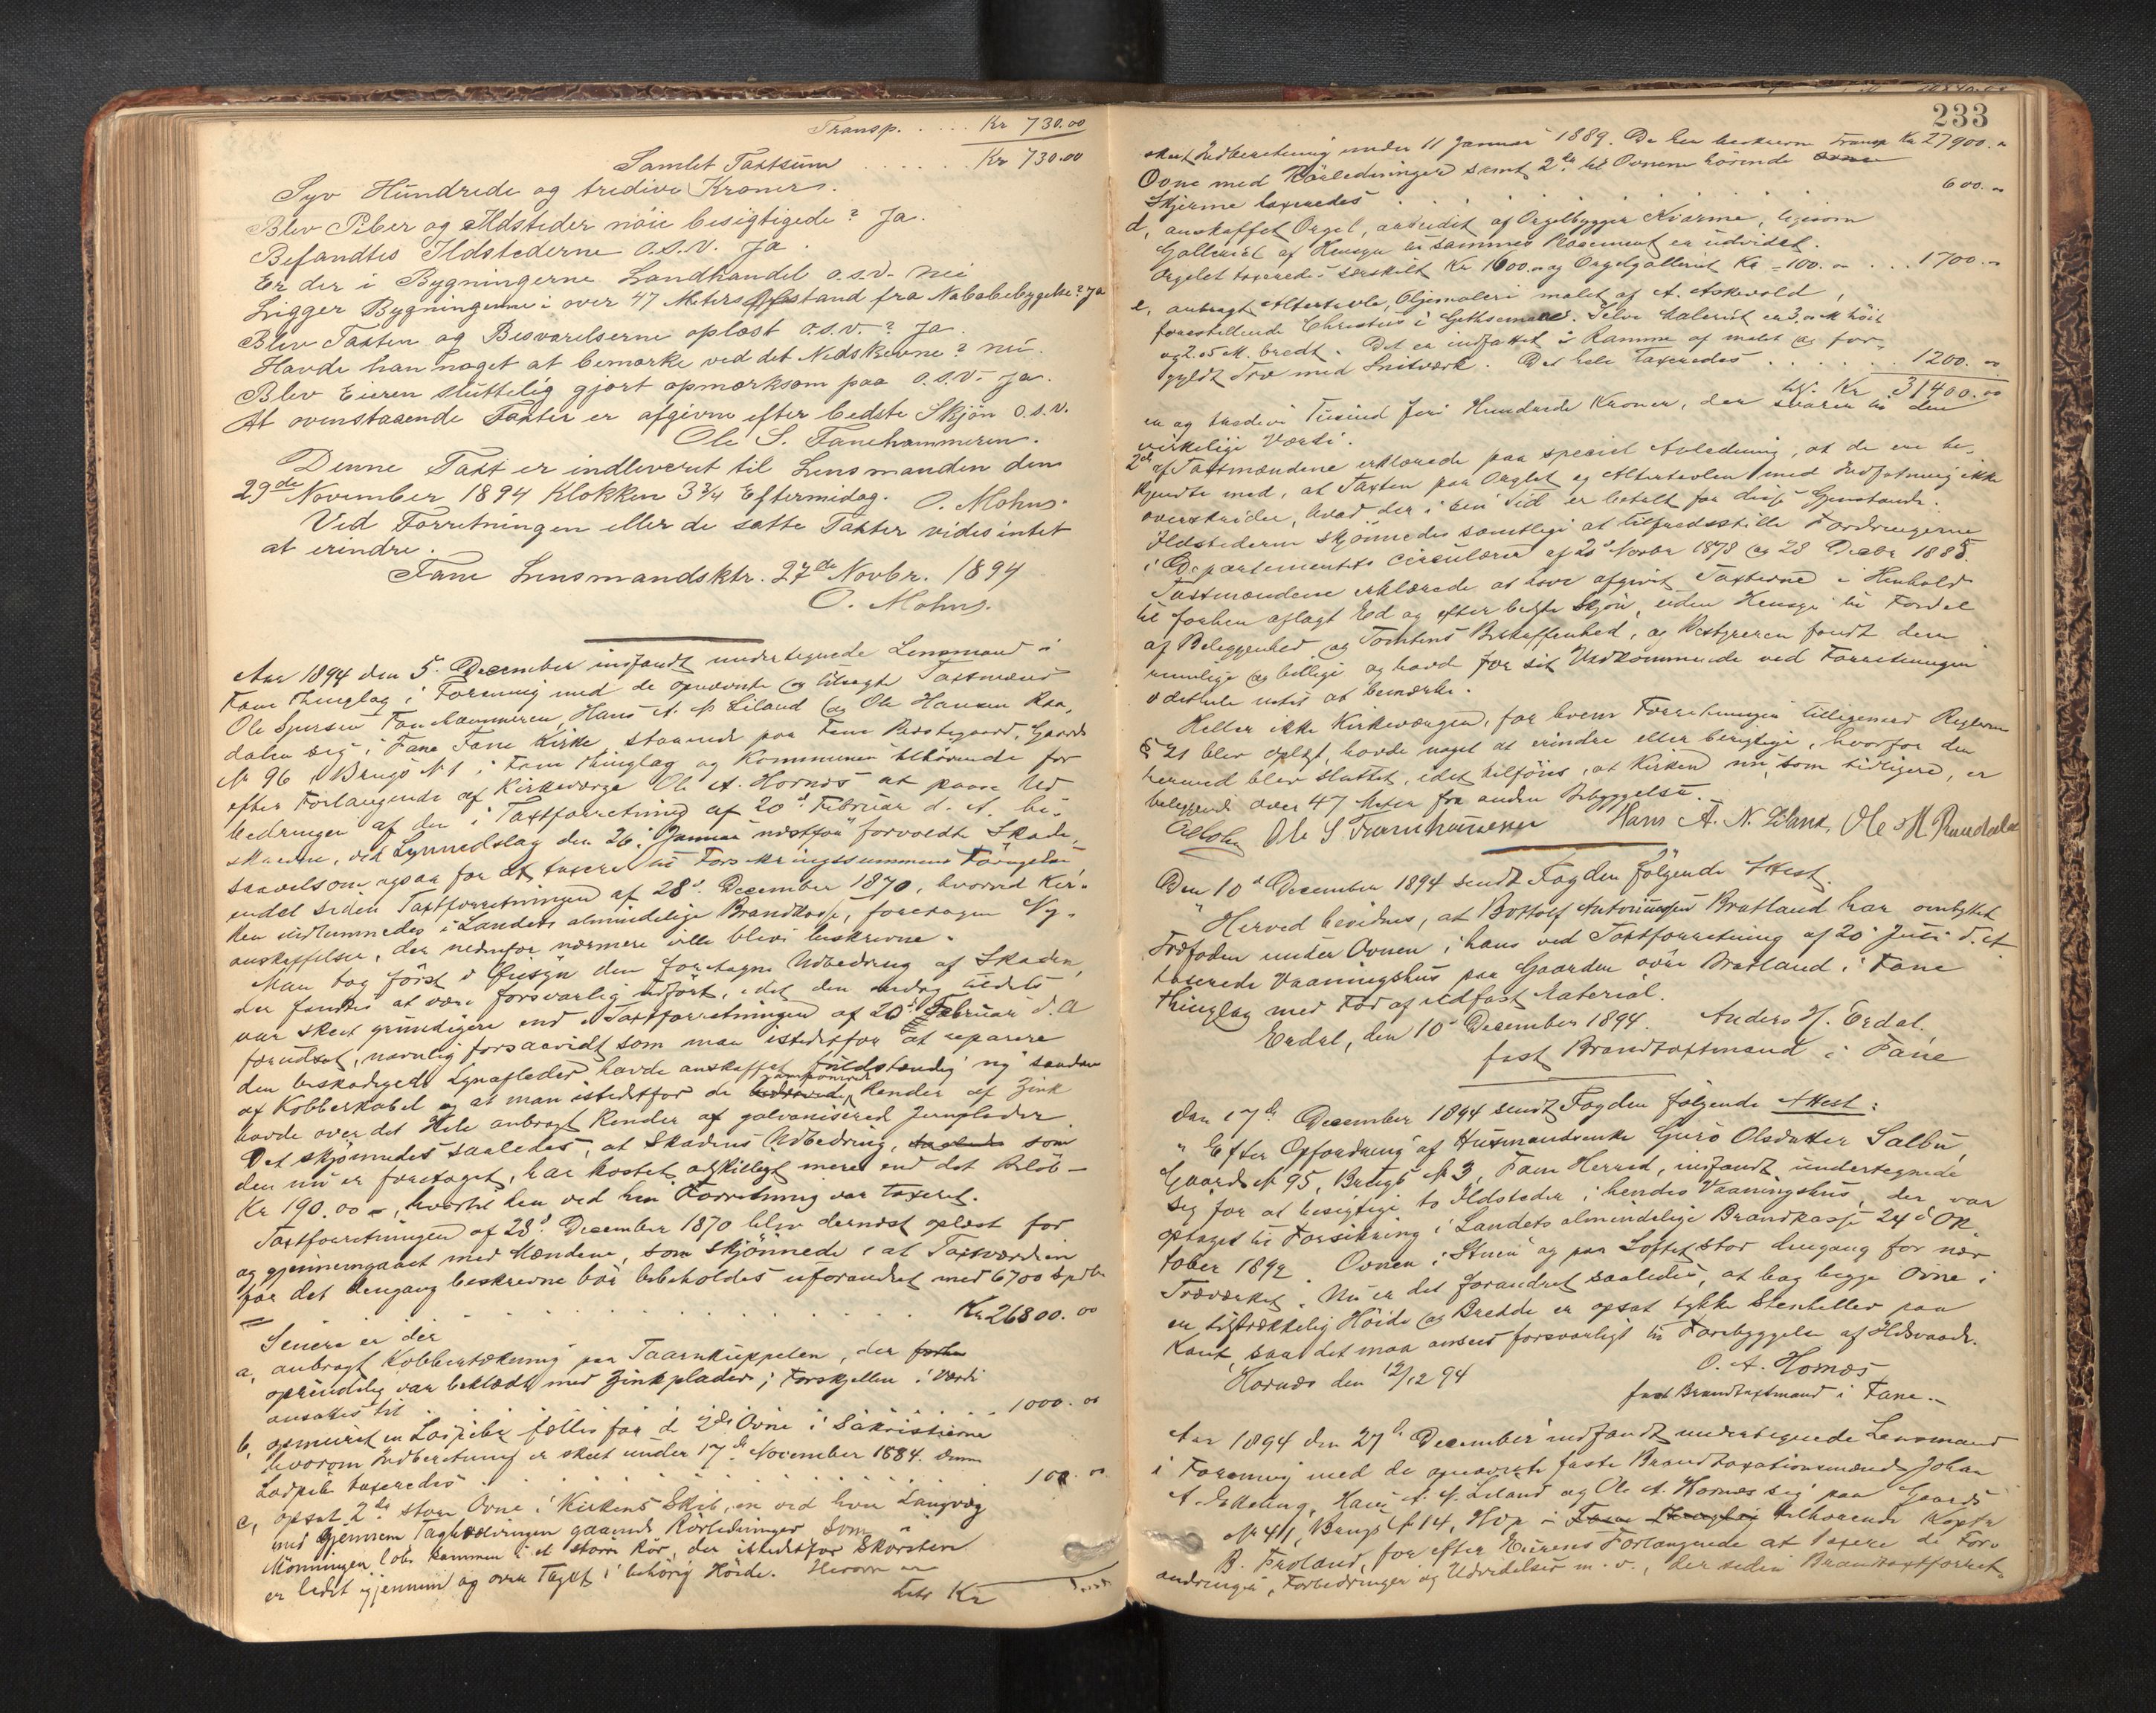 Transp. . . . . Kr 730.00
Samlet Taxtsum . . . . . . Kr 730.00
Syv Hundrede og tredive Kroner.
Blev Piber og Ildsteder nøie besigtigede? Ja.
Befandtes Ildstederne o.s.v. Ja.
Er der i Bygningerne Landhandel o.s.v. Nei
Ligger Bygningerne i over 47 Meters Afstand fra Nabobebyggelse? Ja
Blev Taxten og Besvarelserne oplæst o.s.v.? Ja.
Havde han noget at bemærke ved det Nedskrevne? Nei.
Blev Eieren sluttelig gjort opmærksom paa o.s.v. Ja.
At ovenstaaende Taxter er afgivne efter bedste Skjøn o.s.v.
Ole S. Fanehammeren.
Denne Taxt er indleveret til Lensmanden den
29de November 1894 Klokken 3 3/4 Eftermidag. O. Mohns.
Ved Forretningen eller de satte Taxter vides intet
at erindre.
Fane Lensmandsktr. 27de Novbr. 1894
O. Mohns.
Aar 1894 den 5. December indfandt undertegnede Lensmand i
Fane Thinglag i Forening med de opnævnte og tilsagte Taxtmænd
Ole Sjursen Fanehammeren, Hans A. N. Liland og Ole Hansen Rau-
dalen sig i Fane Kirke staaende paa Fane Præstegaard, Gaards
No 96 Brugs No 1 i Fane Thinglag og Kommunen tilhørende for
efter Forlangende af Kirkeværge Ole A. Hornæs at paase Ud-
bedringen af den i Taxtforretning af 20de Februar d. A. be-
skrevne, ved Lynnedslag den 26. Januar næstfør forvoldte Skade,
saavelsom ogsaa for at taxere til Forsikringssummens Forøgelse
endel siden Taxtforretningen af 28de December 1870, hvorved Kir-
ken indlemmedes i Landets almindelige Brandkasse, foretagne Ny-
anskaffelser, der nedenfor nærmere ville blive beskrevne.
Man tog først i Øiesyn den foretagne Udbedring af Skaden,
der fandtes at være forsvarlig udført, idet den endog tildels
var skeet grundigere end i Taxtforretningen af 20de Februar d. A
forudsat, navnlig forsaavidt som man istedetfor at reparere
den beskadigede Lynafleder havde anskaffet fuldstændig ny saadan
af Kobberkabel og at man istedetfor de Render af Zink
havde over det Hele anbragt Render af galvaniseret Jernplader
Det skjønnedes saaledes, at Skadens Udbedring, som
den nu er foretaget, har kostet adskilligt mere end det Beløb –
Kr 190.00 –, hvortil den ved hin Forretning var taxeret.
Taxtforretningen af 28de December 1870 blev dernæst oplæst for
og gjennemgaaet med Mændene, som skjønnede at Taxtværdien
for det dengang beskrevne bør bibeholdes uforandret med 6700 Spdlr
= . . . . . . . . . Kr 26800.00
Senere er der
a, anbragt Kobbertækning paa Taarnkuppelen, der
oprindelig var beklædt med Zinkplader; Forskjellen i Værdi
ansattes til . . . . . . . . 1000.00
b, opmuret en Ladpibe fælles for de 2de Ovne i Sakristierne
hvorom Indberetning er skeet under 17de November 1884. denne
Ladpibe taxeredes . . . . . . . 100.00
c, opsat 2de store Ovne i Kirkens Skib, en ved hver Langvæg
med gjennem Taghvælvingen gaaende Rørledninger som
Mønningen løbe sammen i et større Rør, der istedetfor Skorsten
er ledet igjennem og over Taget i behørig Høide. Herom er
Lats Kr
233
skeet Indberetning under 11 Januar 1889. De her beskrevne Transp Kr 27900.00
Ovne med Rørledninger samt 2de til Ovnene hørende
Skjerme taxeredes . . . . 600.00
d, anskaffet Orgel, arbeidet af Orgelbygger Kvarme, ligesom
Galleriet af Hensyn til sammes Placement er udvidet.
Orgelet taxeredes særskilt Kr 1600.00 og Orgelgalleriet Kr 100.00 . . . 1700.00
e, anbragt Altertavle, Oljemaleri malet af A. Askevold,
forestillende Christus i Gethsemane. Selve Maleriet er 3.00 M høit
og 2.05 M. bredt. Det er indfattet i Ramme af malet og for-
gyldt Træ med Snitværk. Det hele taxeredes . . . . . 1200.00
tils. Kr 31400.00
en og tredive Tusind fire Hundrede Kroner, der svarer til den
virkelige Værdi.
2de af Taxtmændene erklærede paa speciel Anledning, at de ere be-
kjendte med, at Taxten paa Orglet og Altertavlen med Indfatning ikke
overskrider, hvad der i sin Tid er betalt for disse Gjenstande.
Ildstederne skjønnedes samtlige at tilfredsstille Fordringerne
i Departementets Circulærer af 20de Novbr 1878 og 28 Decbr 1885.
Taxtmændene erklærede at have afgivet Taxterne i Henhold
til forhen aflagt Ed og efter bedste Skjøn, uden Hensyn til Fordel
af Beliggenhed og Tomtens Beskaffenhed, og Bestyreren fandt dem
rimelige og billige og havde for sit Vedkommende ved Forretningen
o desuden intet at bemærke.
Heller ikke Kirkeværgen, for hvem Forretningen tilligemed Reglerne
§ 21 blev oplæst, havde noget at erindre eller berigtige, hvorfor den
hermed blev sluttet, idet tilføies, at Kirken nu, som tidligere, er
beliggende over 47 Meter fra anden Bebyggelse.
Ole S Fanehammeren Hans A. N. Liland, Ole H Raudalen
Den 10de December 1894 sendt Fogden følgende Attest.
"Herved bevidnes, at Bottolf Antoniussen Bratland har ombyttet
Træfoden under Ovnen i hans ved Taxtforretning af 20de Juli d. A
taxerede Vaaningshus paa Gaarden øvre Bratland i Fane
Thinglag med Fod af ildfast Material.
Erdal, den 10de December 1894. Anders H. Erdal.
fast Brandtaxtmand i Fane
Den 17de December 1894 sendt Fogden følgende Attest:
"Efter Opfordring af Husmandsenke Guro Olsdatter Salbu,
Gaards No 95, Brugs No 3, Fane Herred, indfandt undertegnede
sig for at besigtige to Ildsteder i hendes Vaaningshus, der var
optaget til Forsikring i Landets almindelige Brandkasse 24de Ok-
tober 1892. Ovnen i Stuen og paa Loftet stod dengang for nær
Træværket. Nu er det forandret saaledes, at bag begge Ovne i
en tilstrækkelig Høide og Bredde er opsat tykke Stenheller paa
Kant, saa det maa ansees forsvarligt til Forebyggelse af Ildsvaade.
Hornæs den 12/12 94 O. A. Hornæs
fast Brandtaxtmand i Fane.–
Aar 1894 den 27de December indfandt undertegnede Lensmand
i Forening med de opnævnte faste Brandtaxationsmænd Johan
A. Hans A. N. Liland og Ole A. Hornæs sig paa Gaards
No 41, Brugs No 14, Hop i Fane Thinglag tilhørende
B. Frøland, for efter Eierens Forlangende at taxere de For-
andringer, Forbedringer og Udvidelser m. v., der siden Brandtaxtforret-